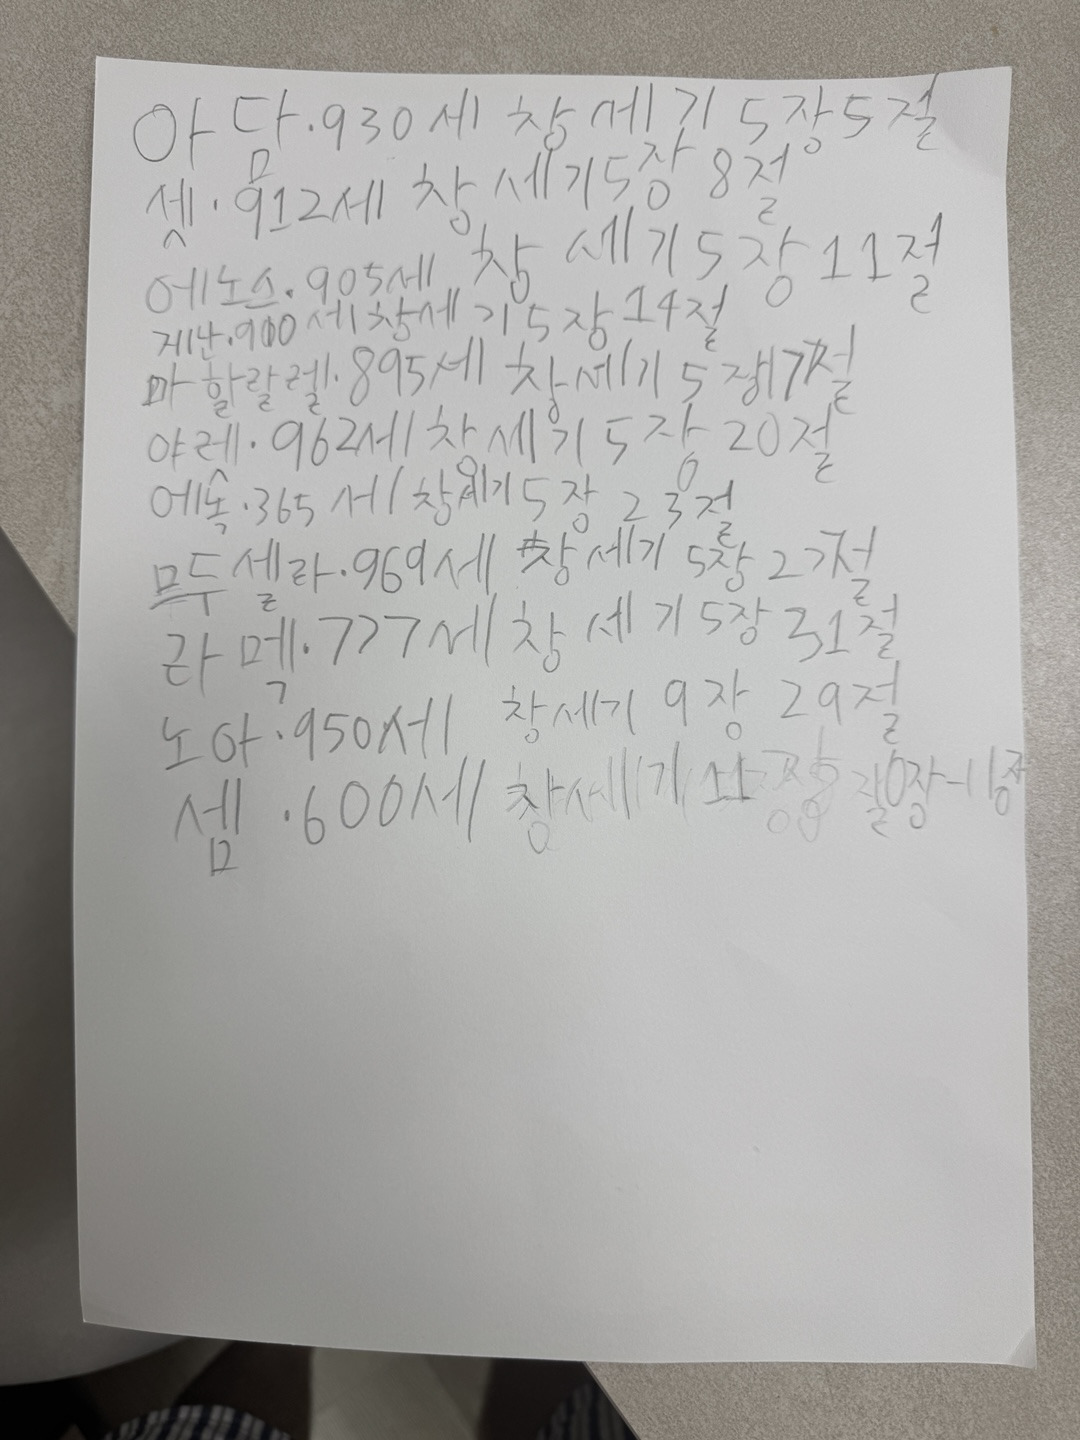 아담.930세 창세기 5장5절
셋.912세 창세기5장 8절
에노스.905세 창세기5장11절
게난.900세창세기5장14절
마할랄렐.895세 창세기5장17절
야렛.962세창세기5장20절
에녹.365세창세기5장23절
므두셀라.969세 창세기5장27절
라멕.777세창세기5장31절
노아.950세 창세기9장29절
셈.600세창세기11